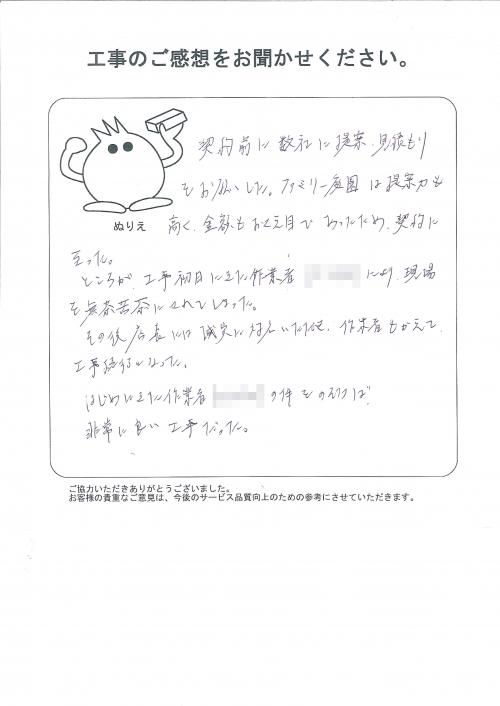 工事のご感想をお聞かせください。
契約前に数社に提案、見積もり
をお願いした。ファミリー庭園は提案力も
高く、金額もおさえ目であったため、契約に
至った。
ぬりえ
ところが、工事初日にきた作業者 により、現場
を無茶苦茶にされてしまった。
その後店長には誠実に対応いただき、作業者もかえて、
工事続行となった。
はじめにきた作業者 の件をのぞけば
非常に良い工事だった。
ご協力いただきありがとうございました。
お客様の貴重なご意見は、今後のサービス品質向上のための参考にさせていただきます。